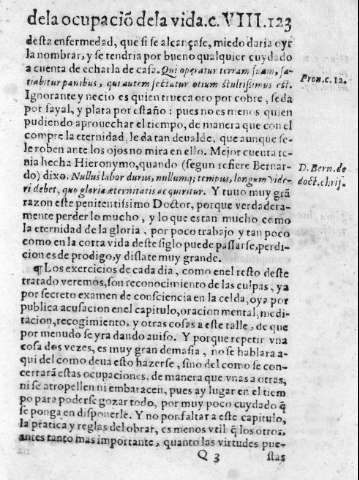 dela ocupaciō dela vida.c.VIII.123
desta enfermedad, que si se alcançase, miedo daria oyr
la nombrar, y se tendria por bueno qualquier cuydado
a cuenta de echarla de casa. Qui operatur terram suam, sa-
Prou.c.12.
trabitur panibus, qui autem sectatur otium stultissimus est.
Ignorante y necio es quien trueca oro por cobre, seda
por sayal, y plata por estaño: pues no es menos quien
pudiendo aprouechar el tiempo, de manera que con el
compre la eternidad, le da tan de valde, que aunque se
le roben ante los ojos no mira en ello. Mejor cuenta te-
nia hecha Hieronymo, quando (segun refiere Bernar-
D. Bern. de
do) dixo. Nullus labor durus, nullumq; tempus, longum vide-
doct. chris.
ri debet, quo gloria æternitatis acquritur. Y tuuo muy grā
razon este penitentissimo Doctor, porque verdadera-
mente perder lo mucho, y lo que es tan mucho como
la eternidad de la gloria, por poco trabajo y tan poco
como en la corta vida deste siglo puede passarse, perdi-
ciones de prodigo, y dislate muy grande.
¶ Los exercicios de cada dia, como en el resto deste
tratado veremos, son reconocimiento de las culpas, ya
por secreto examen de consciencia en la celda, o ya por
publica acusacion en el capitulo, oracion mental, medi-
tacion, recogimiento, y otras cosas a este talle, de que
por menudo se yra dando auiso. Y porque repetir vna
cosa dos vezes, es muy gran demasia, no se hablara a-
qui del como deua esto hazerse, sino del como se con-
certarā estas ocupaciones, de manera que vnas a otras,
ni se atropellen ni embaracen, pues ay lugar en el tiem
po para poderse gozar todo, por muy poco cuydado q̄
se ponga en disponerle. Y no por saltar a este capitulo,
la pratica y reglas del obrar, es menos vtil q̄ los otros,
antes tanto mas importante, quanto las virtudes pue-
Q 3
stas